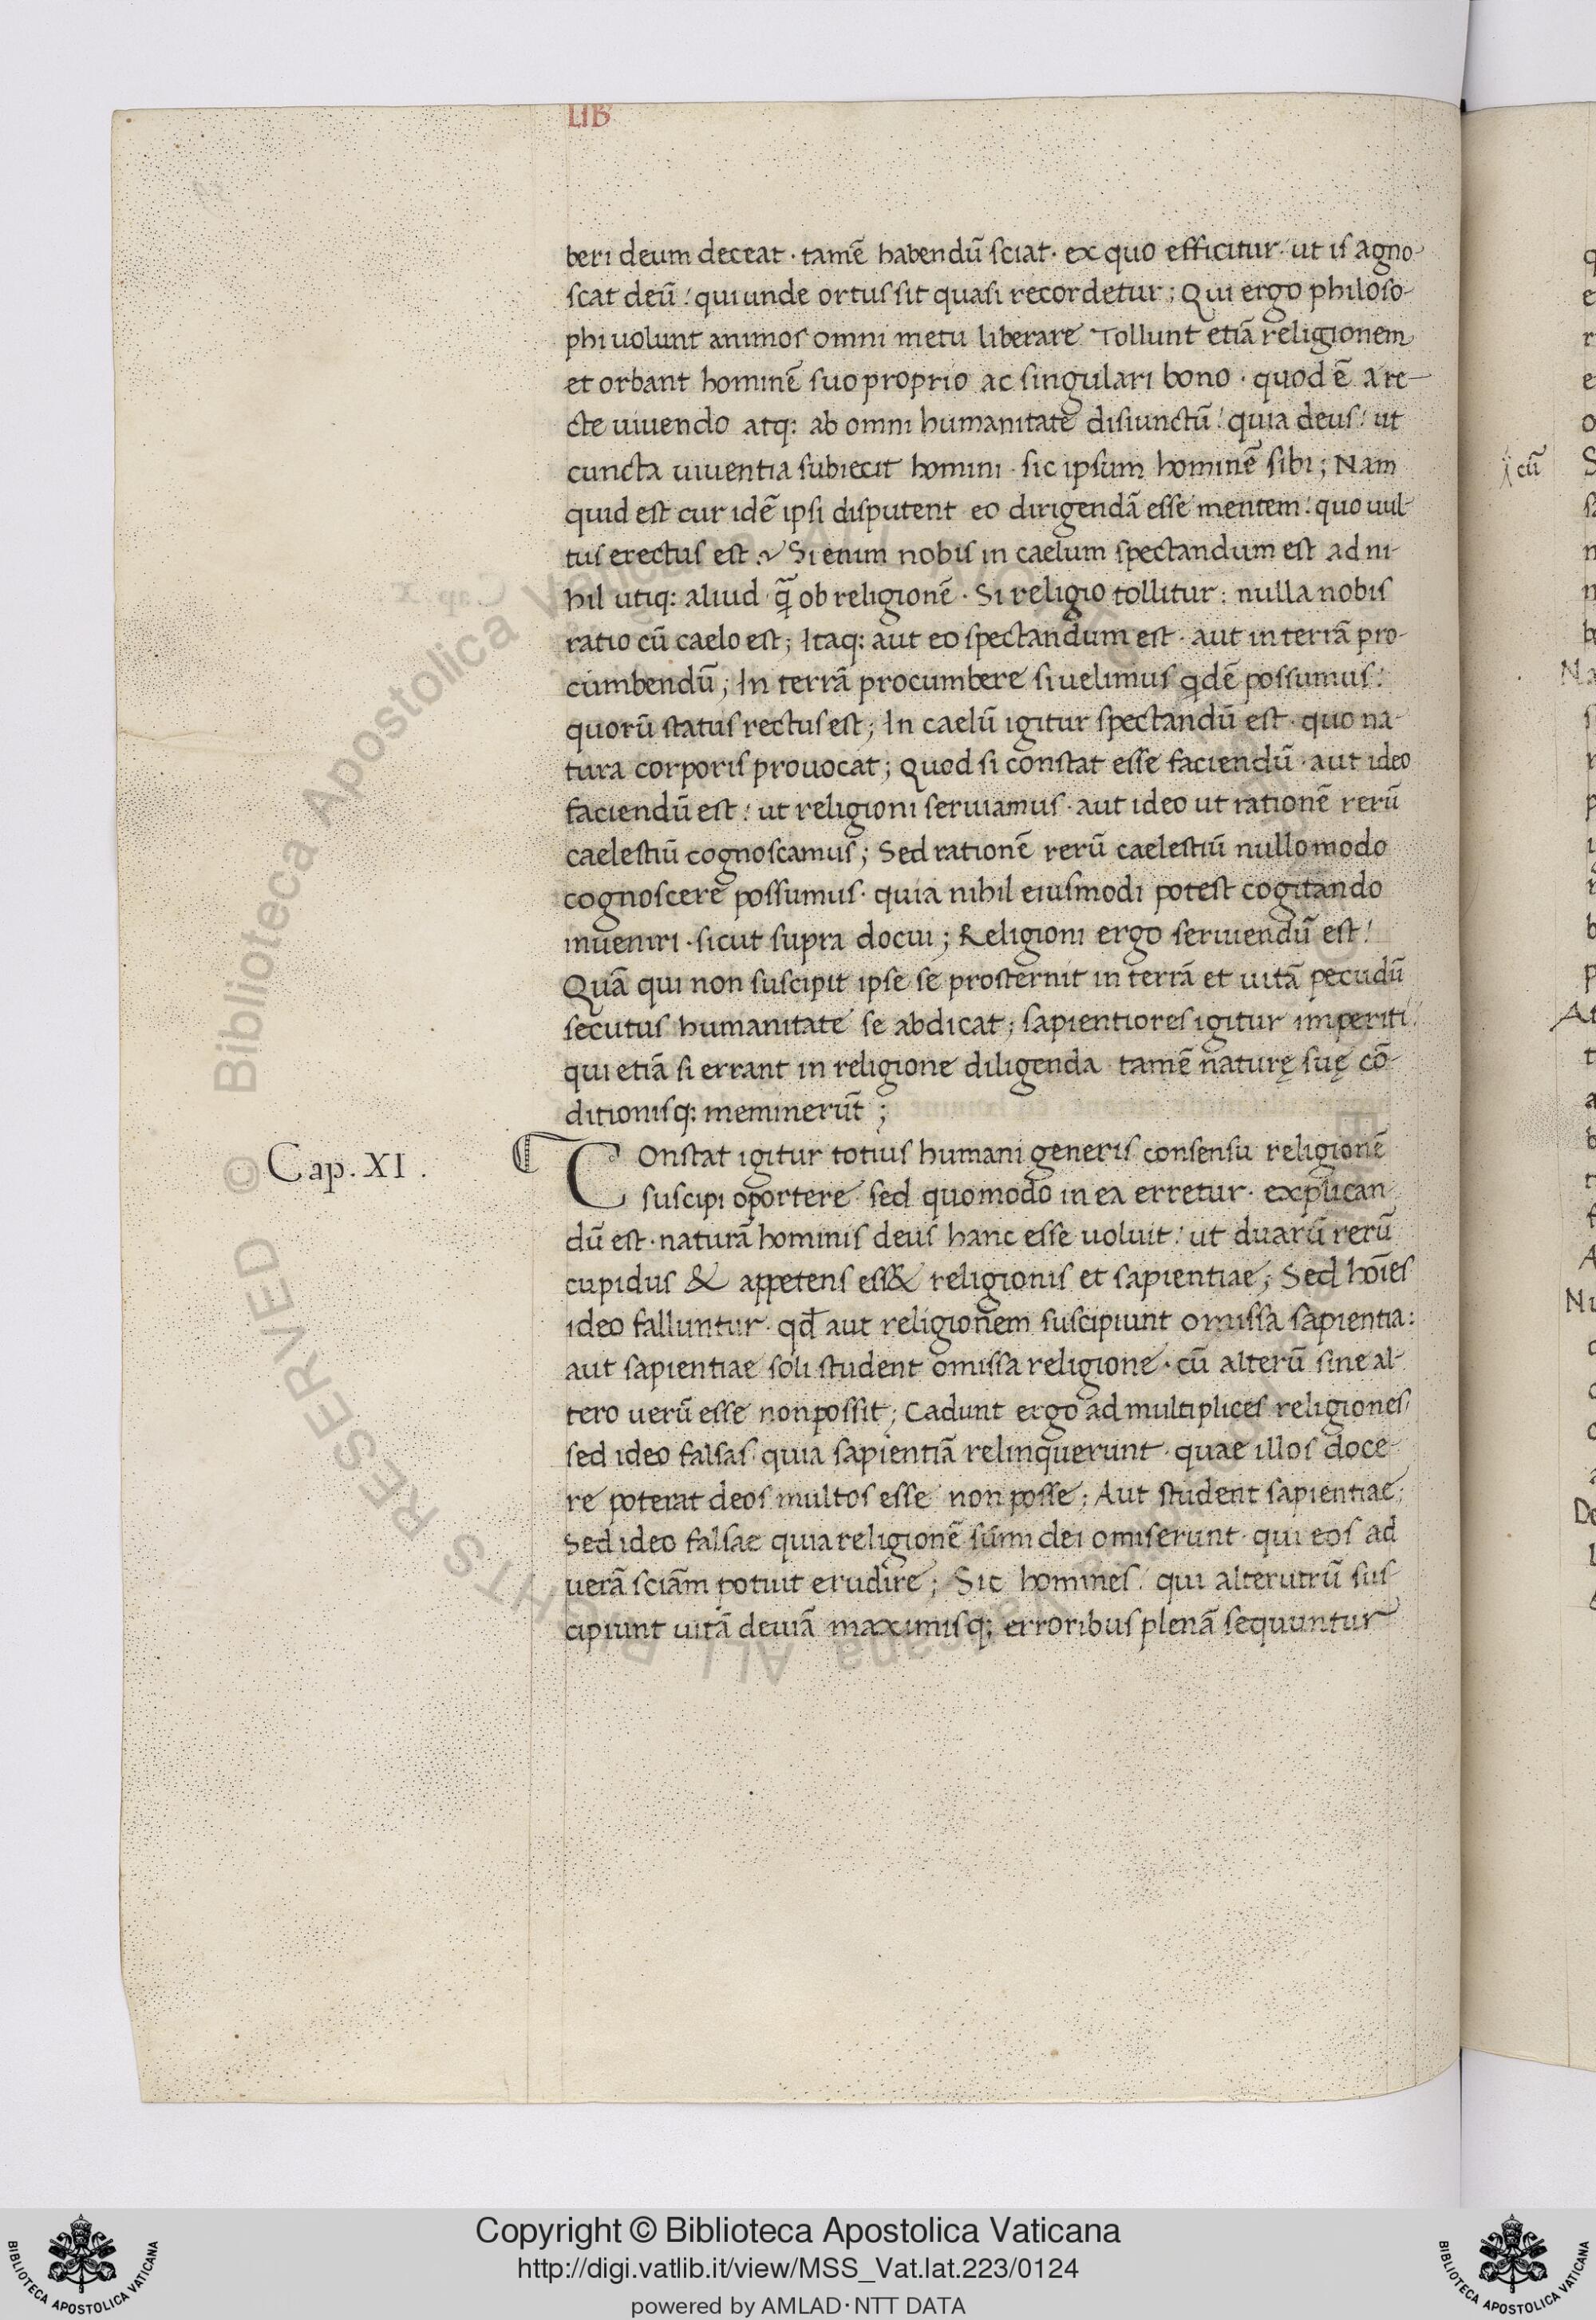 LIB
beri deum deceat · tamē habendū sciat · ex quo efficitur · ut is agno-
scat deū : qui unde ortus sit quasi recordetur ; Qui ergo philoso-
phi uolunt animos omni metu liberare Tollunt etiā religionem
et orbant hominē suo proprio ac singulari bono · quod ē a re-
cte uiuendo atq: ab omni humanitate disiunctū : quia deus : ut
cuncta uiuentia subiecit homini · sic ipsum hominē sibi ; Nam
quid est cur idē ipsi disputent eo dirigendā esse mentem : quo uul-
tus erectus est . Si enim nobis in caelum spectandum est ad ni-
hil utiq: aliud · q̄ ob religionē · Si religio tollitur : nulla nobis
ratio cū caelo est ; Itaq: aut eo spectandum est · aut in terrā pro-
cumbendū ; In terrā procumbere si uelimus qdē possumus :
quorū status rectus est ; In caelū igitur spectandū est · quo na-
tura corporis prouocat ; Quod si constat esse faciendū · aut ideo
faciendū est : ut religioni seruiamus · aut ideo ut rationē rerū
caelestiū cognoscamus ; Sed rationē rerū caelestiū nullo modo
cognoscere possumus · quia nihil eiusmodi potest cogitando
inueniri · sicut supra docui ; Religioni ergo seruiendū est :
Quā qui non suscipit ipse se prosternit in terrā et uitā pecudū
secutus humanitate se abdicat ; sapientiores igitur imperiti
qui etiā si errant in religione diligenda · tamē naturę suę cō-
ditionisq: meminerūt ;
Cap. XI .
COnstat igitur totius humani generis consensu religionē
suscipi oportere · sed quomodo in ea erretur · explican-
dū est · naturā hominis deus hanc esse uoluit : ut duarū rerū
cupidus & appetens ess& religionis et sapientiae ; Sed hoīes
ideo falluntur · qđ aut religionem suscipiunt omissa sapientia :
aut sapientiae soli student omissa religione · cū alterū sine al-
tero uerū esse non possit ; Cadunt ergo ad multiplices religiones
sed ideo falsas · quia sapientiā relinquerunt · quae illos doce-
re poterat deos multos esse non posse ; Aut student sapientiae ;
Sed ideo falsae quia religionē sūmi dei omiserunt · qui eos ad
uerā sciām potuit erudire ; Sic homines : qui alterutrū sus-
cipiunt uitā deuiā maximisq; erroribus plenā sequuntur
cū
Copyright © Biblioteca Apostolica Vaticana
http://digi.vatlib.it/view/MSS_Vat.lat.223/0124
powered by AMLAD·NTT DATA
BIBLIOTECA APOSTOLICA VATICANA
BIBLIOTECA APOSTOLICA VATICANA